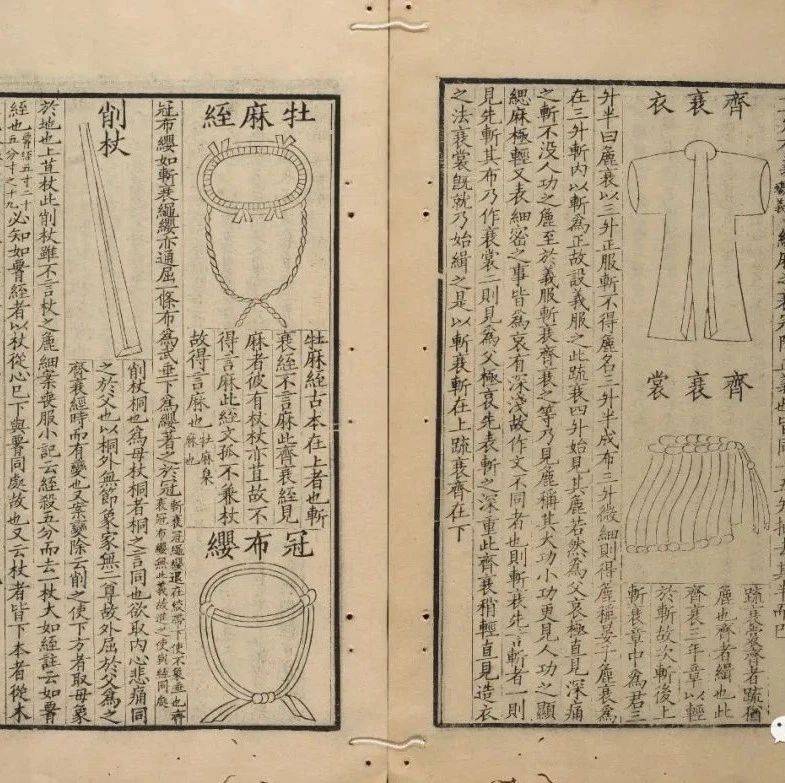 齊衰衣
齊衰裳
疏衰裳齊者疏猶
麤也齊者緝也此
齊衰三年章以輕
於斬故次斬後上
斬衰章中為君三
升半曰麤衰以三升正服斬不得麤名三升半成布三升微細則得麤稱晏子麤衰為
在三升斬內以斬為正故設義服之此疏衰四升始見其麤若然為父哀極直見深痛
之斬不沒人功之麤至於義服斬衰齊衰之等乃見麤稱其大功小功更見人功之顯
緦麻極輕又表細密之事皆為哀有深淺故作文不同者也則斬衰先言斬者一則
見先斬其布乃作衰裳二則見為父極哀先表斬之深重此齊衰稍輕直見造衣
之法衰裳既就乃始緝之是以斬衰斬在上疏衰齊在下
牡麻絰
牡麻絰古本在上者也斬
衰絰不言麻此齊衰絰見
麻者彼有杖杖亦苴故不
得言麻此絰文孤不兼杖
故得言麻也牡麻枲麻也
冠布纓
冠布纓如斬衰繩纓亦通屈一條布為武垂下為纓著之於冠斬衰冠繩纓退在絞帶下使不蒙苴也齊衰冠布纓無此義故進之使與絰同處
削杖
削杖桐也為母杖桐者桐之言同也欲取內心悲痛同
之於父也以桐外無節象家無二尊故外屈於父為之
齊衰經時而有變也又案變除云削之使下方者取母象
於地也上苴杖此削杖雖不言杖之麤細案喪服小記云絰殺五分而去一杖大如絰註云如腰
絰也腰絰五寸二十五分寸之十九必知如腰絰者以杖從心已下與腰同處故也又云杖者皆下本者從木